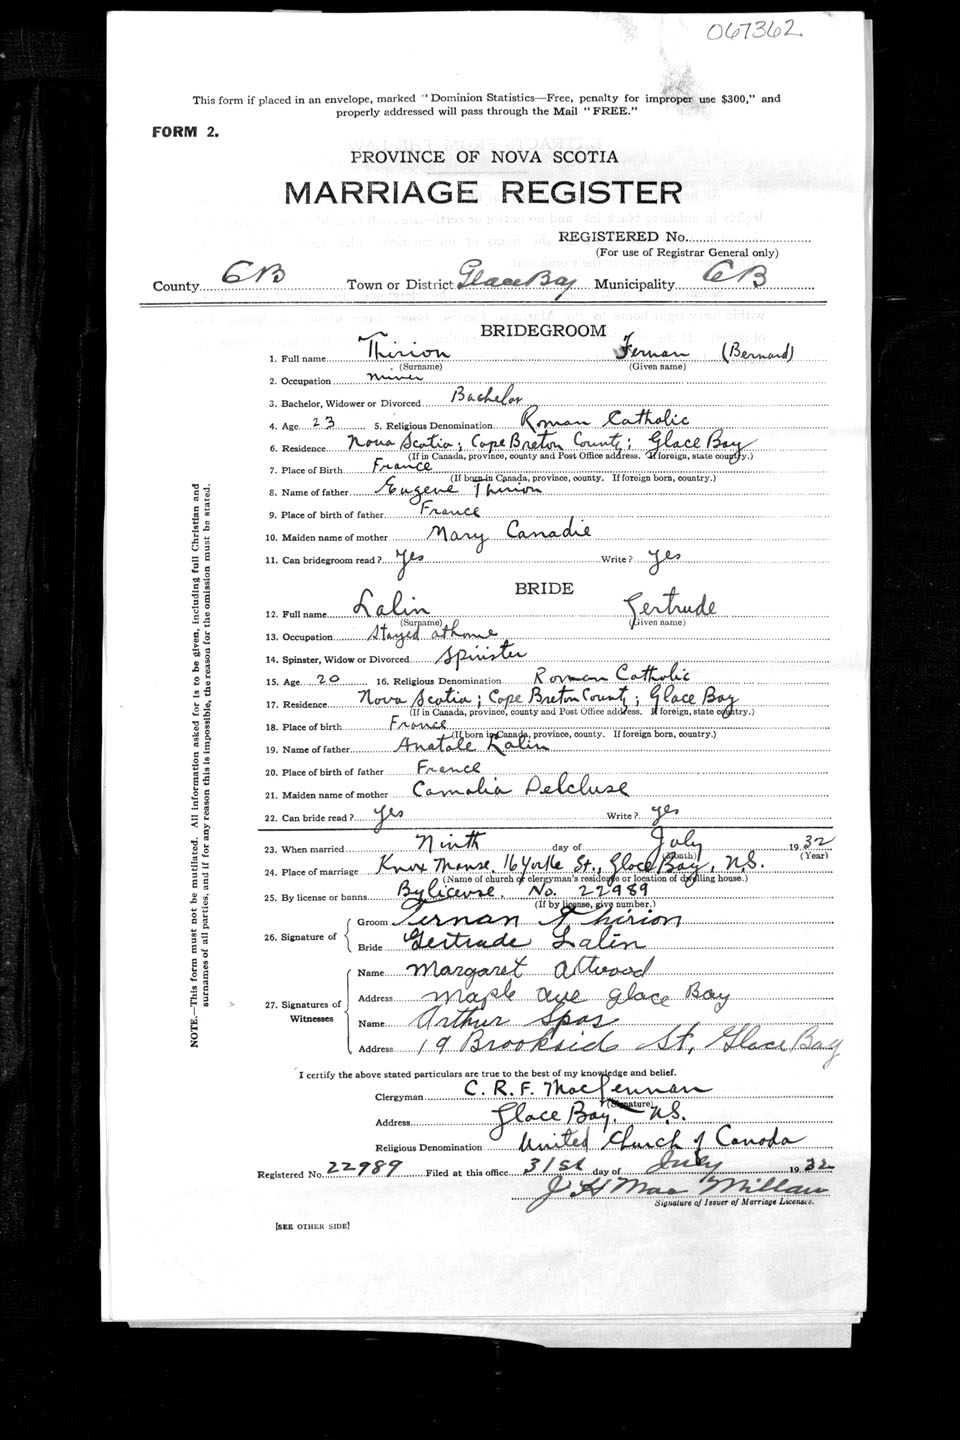 067362
This form if placed in an envelope, marked "Dominion Statistics—Free, penalty for improper use $300," and
properly addressed will pass through the Mail "FREE."
FORM 2.
PROVINCE OF NOVA SCOTIA
MARRIAGE REGISTER
REGISTERED No.
(For use of Registrar General only)
County CB Town or District Glace Bay Municipality CB
BRIDEGROOM
1. Full name Thirion Fernan (Bernard)
(Surname) (Given name)
2. Occupation miner
3. Bachelor, Widower or Divorced Bachelor
4. Age 23 5. Religious Denomination Roman Catholic
6. Residence Nova Scotia; Cape Breton County; Glace Bay
(If in Canada, province, county and Post Office address. If foreign, state country.)
7. Place of Birth France
(If born in Canada, province, county. If foreign born, country.)
8. Name of father Eugene Thirion
9. Place of birth of father France
10. Maiden name of mother Mary Canadie
11. Can bridegroom read? Yes Write? Yes
BRIDE
12. Full name Lalin Gertrude
(Surname) (Given name)
13. Occupation Stayed at home
14. Spinster, Widow or Divorced Spinister
15. Age 20 16. Religious Denomination Roman Catholic
17. Residence Nova Scotia; Cape Breton County; Glace Bay
(If in Canada, province, county and Post Office address. If foreign, state country.)
18. Place of birth France
(If born in Canada, province, county. If foreign born, country.)
19. Name of father Anatole Lalin
20. Place of birth of father France
21. Maiden name of mother Camalia Delcluse
22. Can bride read? Yes Write? Yes
23. When married Ninth day of July 1932
(Month) (Year)
24. Place of marriage Knox Manse, 16 Yorke St., Glace Bay, N.S.
(Name of church or clergyman's residence or location of dwelling house.)
25. By license or banns By license. No. 22989
(If by license, give number.)
26. Signature of Groom Fernan Thirion
Bride Gertrude Lalin
27. Signatures of Witnesses Name Margaret Atwood
Address Maple Ave Glace Bay
Name Arthur Spas
Address 19 Brookside St, Glace Bay
I certify the above stated particulars are true to the best of my knowledge and belief.
Clergyman C. R. F. MacLennan
(Signature)
Address Glace Bay, N.S.
Religious Denomination United Church of Canada
Registered No. 22989 Filed at this office 31st day of July 1932
J H MacMillan
Signature of Issuer of Marriage Licenses.
[SEE OTHER SIDE]
NOTE.—This form must not be mutilated. All information asked for is to be given, including full Christian and
surnames of all parties, and if for any reason this is impossible, the reason for the omission must be stated.